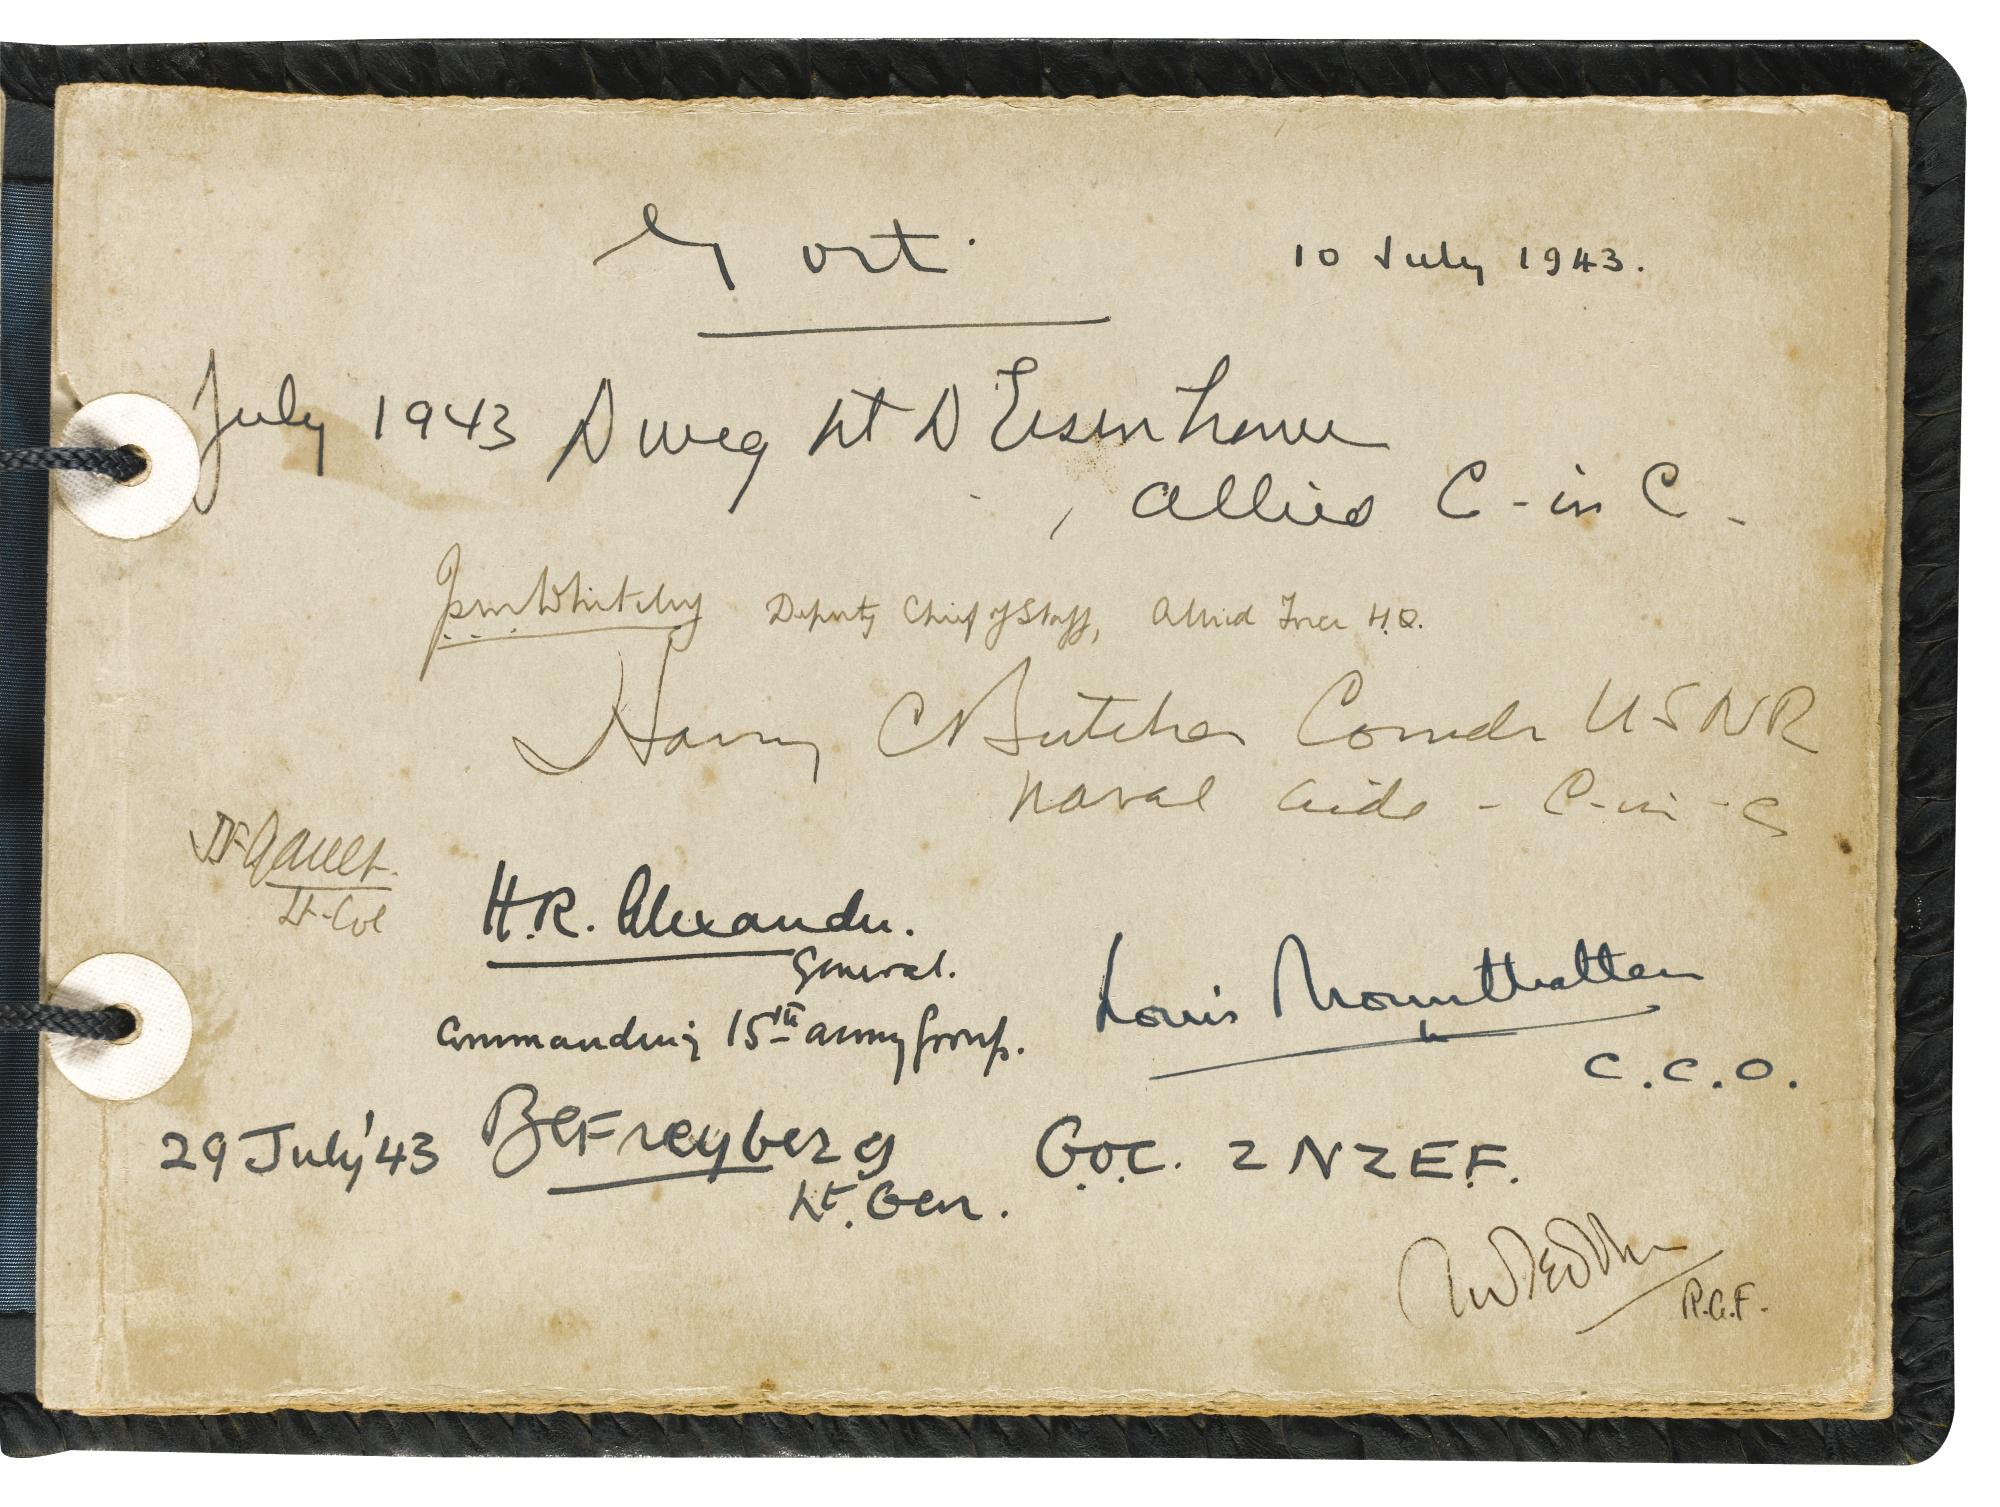 Gort. 10 July 1943.
July 1943 Dwight D Eisenhower
, Allied C-in C -
J F M Whiteley Deputy Chief of Staff, Allied Force H.Q.
Harry C Butcher Comdr USNR
Naval Aide - C-in-C
Gault.
Lt-Col
H.R. Alexander.
General.
Commanding 15th Army Group.
Louis Mountbatten
C.C.O.
29 July '43 B C Freyberg G.O.C. 2 NZEF.
Lt. Gen.
Tedder
R.A.F.